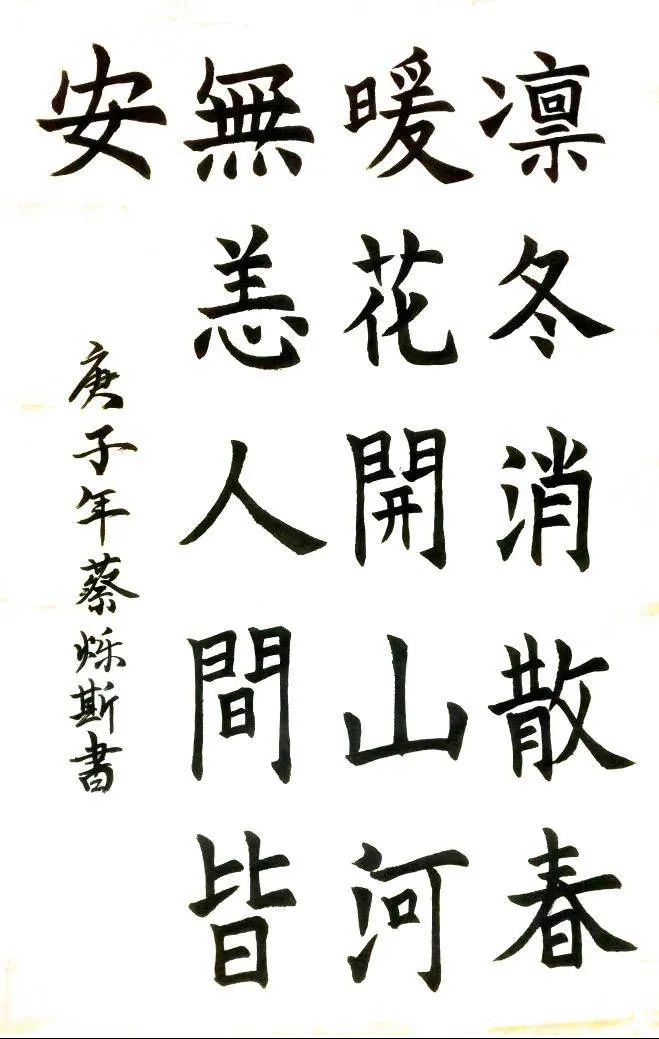 凛冬消散春
暖花開山河
無恙人間皆
安
庚子年蔡烁斯書